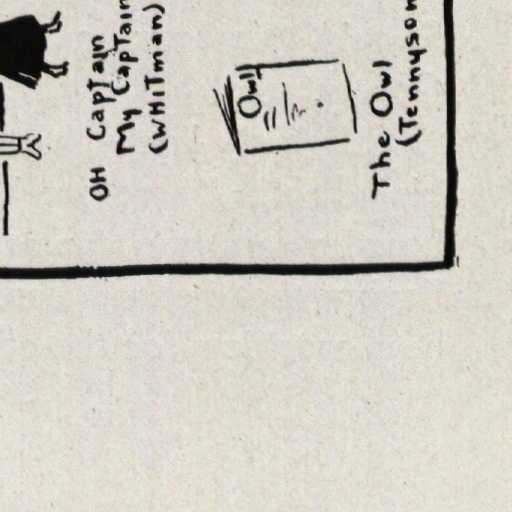 OH Captain
My Captain
(WHITman)
Owl
The Owl
(Tennyson